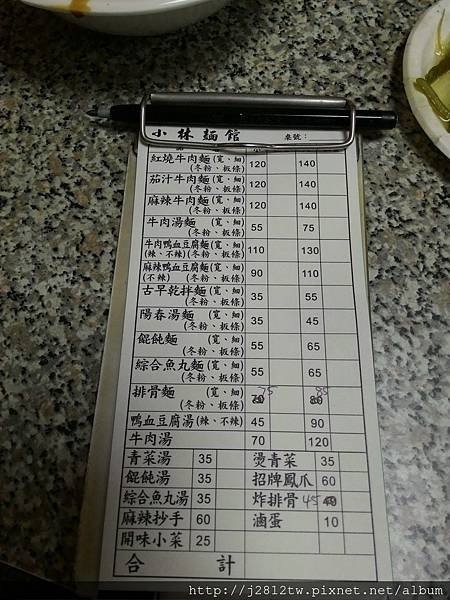 小林麵館 桌號：
紅燒牛肉麵(寬、細) 120 140
(冬粉、板條)
茄汁牛肉麵(寬、細) 120 140
(冬粉、板條)
麻辣牛肉麵(寬、細) 120 140
(冬粉、板條)
牛肉湯麵 (寬、細) 55 75
(冬粉、板條)
牛肉鴨血豆腐麵(寬、細) 110 130
(辣、不辣)(冬粉、板條)
麻辣鴨血豆腐麵(寬、細) 90 110
(不辣) (冬粉、板條)
古早乾拌麵(寬、細) 35 55
(冬粉、板條)
陽春湯麵 (寬、細) 35 45
(冬粉、板條)
餛飩麵 (寬、細) 55 65
(冬粉、板條)
綜合魚丸麵(寬、細) 55 65
(冬粉、板條)
排骨麵 (寬、細) 70 75 80 85
(冬粉、板條)
鴨血豆腐湯(辣、不辣) 45 90
牛肉湯 70 120
青菜湯 35 燙青菜 35
餛飩湯 35 招牌鳳爪 60
綜合魚丸湯 35 炸排骨 45 40
麻辣抄手 60 滷蛋 10
開味小菜 25
合計
http://j2812tw.pixnet.net/album